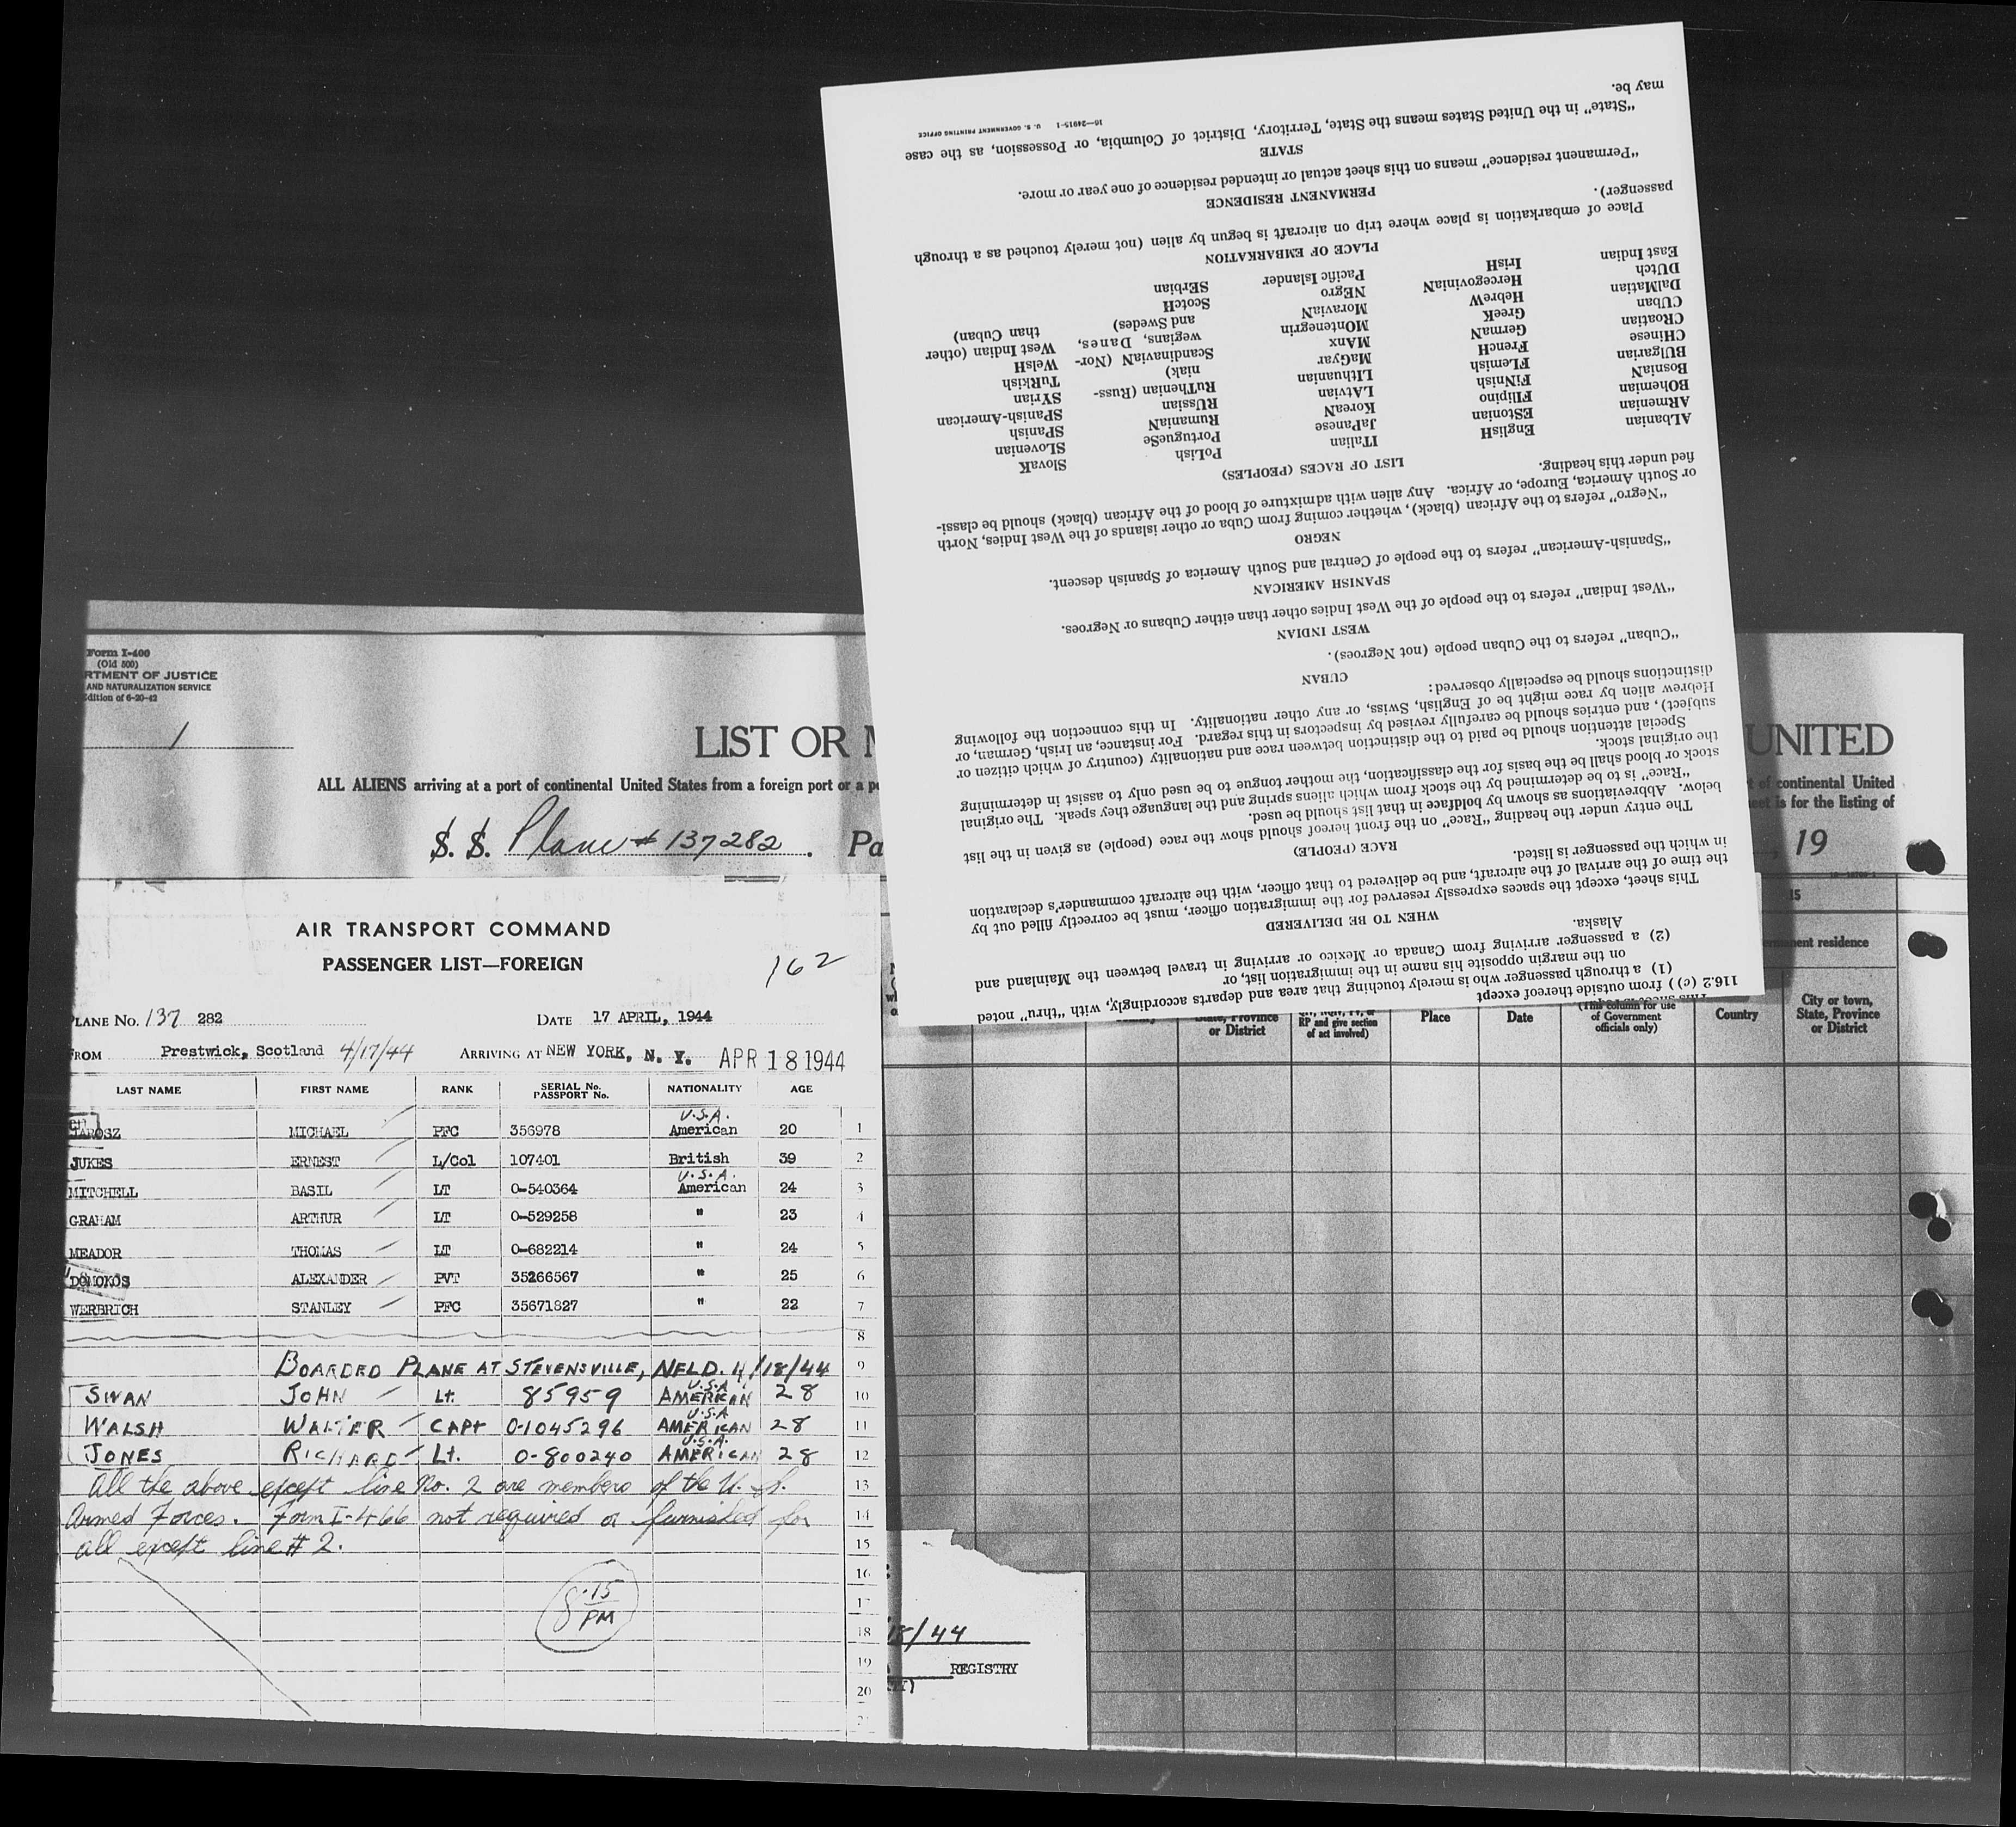 Form I-400
(Old 500)
RTMENT OF JUSTICE
AND NATURALIZATION SERVICE
dition of 6-20-42
1
LIST OR
ALL ALIENS arriving at a port of continental United States from a foreign port or a
S. S. Plane # 137282. Pa
AIR TRANSPORT COMMAND
PASSENGER LIST—FOREIGN
162
LANE No. 137 282 DATE 17 APRIL, 1944
ROM Prestwick, Scotland 4/17/44 ARRIVING AT NEW YORK, N. Y. APR 18 1944
LAST NAME FIRST NAME RANK SERIAL No. PASSPORT No. NATIONALITY AGE
JAROSZ MICHAEL PFC 356978 U.S.A. American 20 1
JUKES ERNEST L/Col 107401 British 39 2
MITCHELL BASIL LT O-540364 U.S.A. American 24 3
GRAHAM ARTHUR LT O-529258 " 23 4
MEADOR THOMAS LT O-682214 " 24 5
DOMOKOS ALEXANDER PVT 35266567 " 25 6
WERBRICH STANLEY PFC 35671827 " 22 7
8
BOARDED PLANE AT STEVENSVILLE, NFLD. 4/18/44 9
SWAN JOHN Lt. 85959 U.S.A. AMERICAN 28 10
WALSH WALTER CAPt O-1045296 U.S.A AMERICAN 28 11
JONES RICHARD Lt. O-800240 U.S.A. AMERICAN 28 12
All the above except line No. 2 are members of the U. S. 13
Armed Forces. Form I-466 not required or furnished for 14
all except line # 2. 15
16
8:15 PM
17
18
19
20
18/44
REGISTRY
116.2 (c)) from outside thereof except
(1) a through passenger who is merely touching that area and departs accordingly, with "thru" noted
on the margin opposite his name in the immigration list, or
(2) a passenger arriving from Canada or Mexico or arriving in travel between the Mainland and
Alaska.
WHEN TO BE DELIVERED
This sheet, except the spaces expressly reserved for the immigration officer, must be correctly filled out by
the time of the arrival of the aircraft, and be delivered to that officer, with the aircraft commander's declaration
in which the passenger is listed.
RACE (PEOPLE)
The entry under the heading "Race" on the front hereof should show the race (people) as given in the list
below. Abbreviations as shown by boldface in that list should be used.
"Race" is to be determined by the stock from which aliens spring and the language they speak. The original
stock or blood shall be the basis for the classification, the mother tongue to be used only to assist in determining
the original stock.
Special attention should be paid to the distinction between race and nationality (country of which citizen or
subject), and entries should be carefully revised by inspectors in this regard. For instance, an Irish, German, or
Hebrew alien by race might be of English, Swiss, or any other nationality. In this connection the following
distinctions should be especially observed:
CUBAN
"Cuban" refers to the Cuban people (not Negroes).
WEST INDIAN
"West Indian" refers to the people of the West Indies other than either Cubans or Negroes.
SPANISH AMERICAN
"Spanish-American" refers to the people of Central and South America of Spanish descent.
NEGRO
"Negro" refers to the African (black), whether coming from Cuba or other islands of the West Indies, North
or South America, Europe, or Africa. Any alien with admixture of blood of the African (black) should be classi-
fied under this heading.
LIST OF RACES (PEOPLES)
ALbanian EnglisH ITalian PoLish SlovaK
ARmenian EStonian JaPanese PortugueSe SLovenian
BOhemian FIlipino KoreaN RumaniaN SPanish
BosniaN FiNnish LAtvian RUssian SPanish-American
BUlgarian FLemish LIthuanian RuThenian (Russ- SYrian
CHinese FrencH MaGyar niak) TuRkish
CRoatian GermaN MAnx ScandinaviaN (Nor- WelsH
CUban GreeK MOntenegrin wegians, Danes, West Indian (other
DalMatian HebreW MoraviaN and Swedes) than Cuban)
DUtch HercegoviniaN NEgro ScotcH
East Indian IrisH Pacific Islander SErbian
PLACE OF EMBARKATION
Place of embarkation is place where trip on aircraft is begun by alien (not merely touched as a through
passenger).
PERMANENT RESIDENCE
"Permanent residence" means on this sheet actual or intended residence of one year or more.
STATE
"State" in the United States means the State, Territory, District of Columbia, or Possession, as the case
may be.
16—24915-1 U. S. GOVERNMENT PRINTING OFFICE
UNITED
t of continental United
eet is for the listing of
, 19
15
ermanent residence
State, Province or District
RP and give section of act involved)
Place
Date
(This column for use of Government officials only)
Country
City or town, State, Province or District